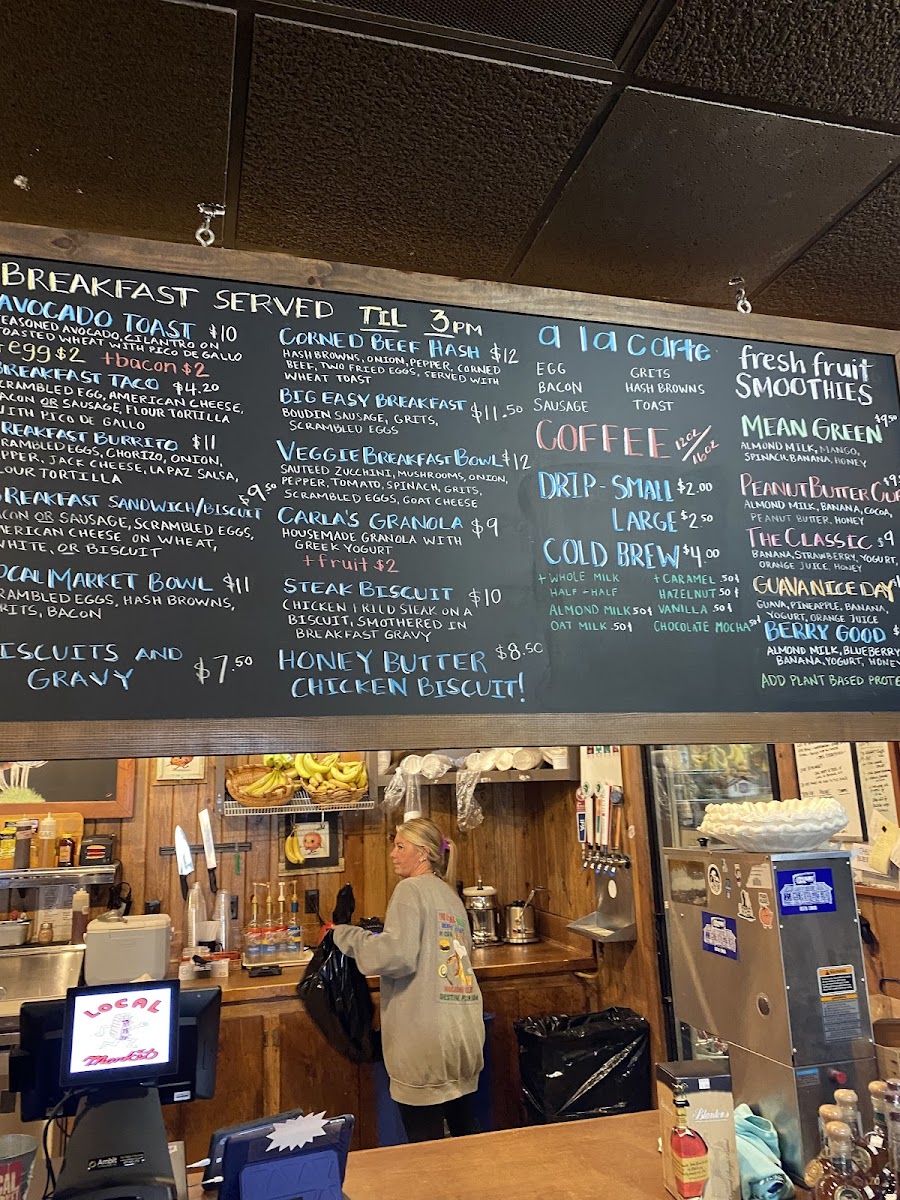 BREAKFAST SERVED TIL 3PM
AVOCADO TOAST $10
SEASONED AVOCADO, CILANTRO ON
TOASTED WHEAT WITH PICO DE GALLO
+egg $2 +bacon $2
BREAKFAST TACO $4.20
SCRAMBLED EGG, AMERICAN CHEESE,
BACON OR SAUSAGE, FLOUR TORTILLA
WITH PICO DE GALLO
BREAKFAST BURRITO $11
SCRAMBLED EGGS, CHORIZO, ONION,
PEPPER, JACK CHEESE, LA PAZ SALSA,
FLOUR TORTILLA
BREAKFAST SANDWICH/BISCUIT $9.50
BACON OR SAUSAGE, SCRAMBLED EGGS,
AMERICAN CHEESE ON WHEAT,
WHITE, OR BISCUIT
LOCAL MARKET BOWL $11
SCRAMBLED EGGS, HASH BROWNS,
GRITS, BACON
BISCUITS AND
GRAVY $7.50
CORNED BEEF HASH $12
HASH BROWNS, ONION, PEPPER, CORNED
BEEF, TWO FRIED EGGS, SERVED WITH
WHEAT TOAST
BIG EASY BREAKFAST $11.50
BOUDIN SAUSAGE, GRITS,
SCRAMBLED EGGS
VEGGIE BREAKFAST BOWL $12
SAUTEED ZUCCHINI, MUSHROOMS, ONION,
PEPPER, TOMATO, SPINACH, GRITS,
SCRAMBLED EGGS, GOAT CHEESE
CARLA'S GRANOLA $9
HOUSEMADE GRANOLA WITH
GREEK YOGURT
+fruit $2
STEAK BISCUIT $10
CHICKEN FRIED STEAK ON A
BISCUIT, SMOTHERED IN
BREAKFAST GRAVY
HONEY BUTTER $8.50
CHICKEN BISCUIT!
a la carte
EGG GRITS
BACON HASH BROWNS
SAUSAGE TOAST
COFFEE 12oz/16oz
DRIP - SMALL $2.00
LARGE $2.50
COLD BREW $4.00
+ WHOLE MILK + CARAMEL .50¢
HALF-HALF HAZELNUT .50¢
ALMOND MILK .50¢ VANILLA .50¢
OAT MILK .50¢ CHOCOLATE MOCHA .50¢
fresh fruit
SMOOTHIES
MEAN GREEN $9.50
ALMOND MILK, MANGO,
SPINACH, BANANA, HONEY
PEANUT BUTTER CUP
ALMOND MILK, BANANA, COCOA,
PEANUT BUTTER, HONEY
THE CLASSIC $9
BANANA, STRAWBERRY, YOGURT,
ORANGE JUICE, HONEY
GUAVA NICE DAY
GUAVA, PINEAPPLE, BANANA,
YOGURT, ORANGE JUICE
BERRY GOOD
ALMOND MILK, BLUEBERRY
BANANA, YOGURT, HONEY
ADD PLANT BASED PROTE
LOCAL
Thanks!
Ambit
Blanton's